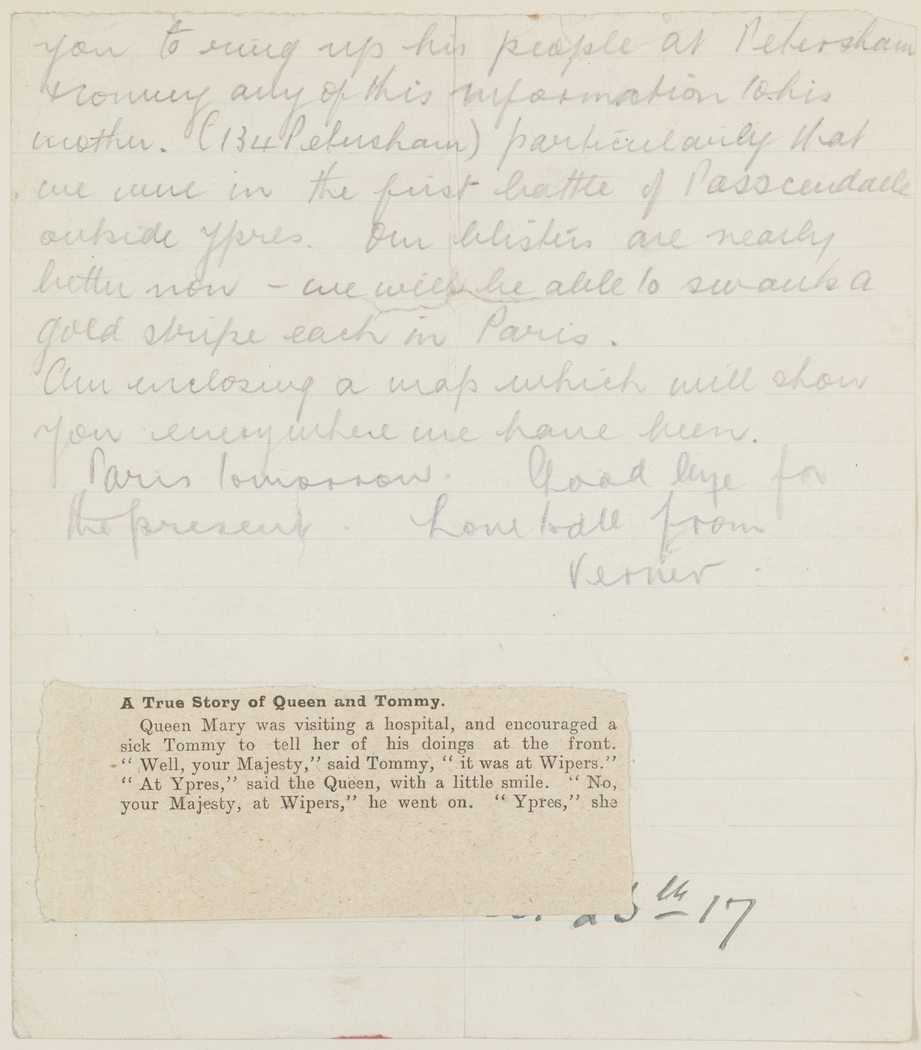 you to ring up his people at Petersham
& convey any of this information to his
mother. (134 Petersham) particularily that
we were in the first battle of Passcendaele
outside Ypres. Our blisters are nearly
better now - we will be able to swank a
gold stripe each in Paris.
Am enclosing a map which will show
you everywhere we have been.
Paris tomorrow. Good bye for
the present. Love to all from
Verner.
A True Story of Queen and Tommy.
Queen Mary was visiting a hospital, and encouraged a
sick Tommy to tell her of his doings at the front.
“ Well, your Majesty,” said Tommy, “ it was at Wipers.”
“ At Ypres,” said the Queen, with a little smile. “ No,
your Majesty, at Wipers,” he went on. “ Ypres,” she
th 17